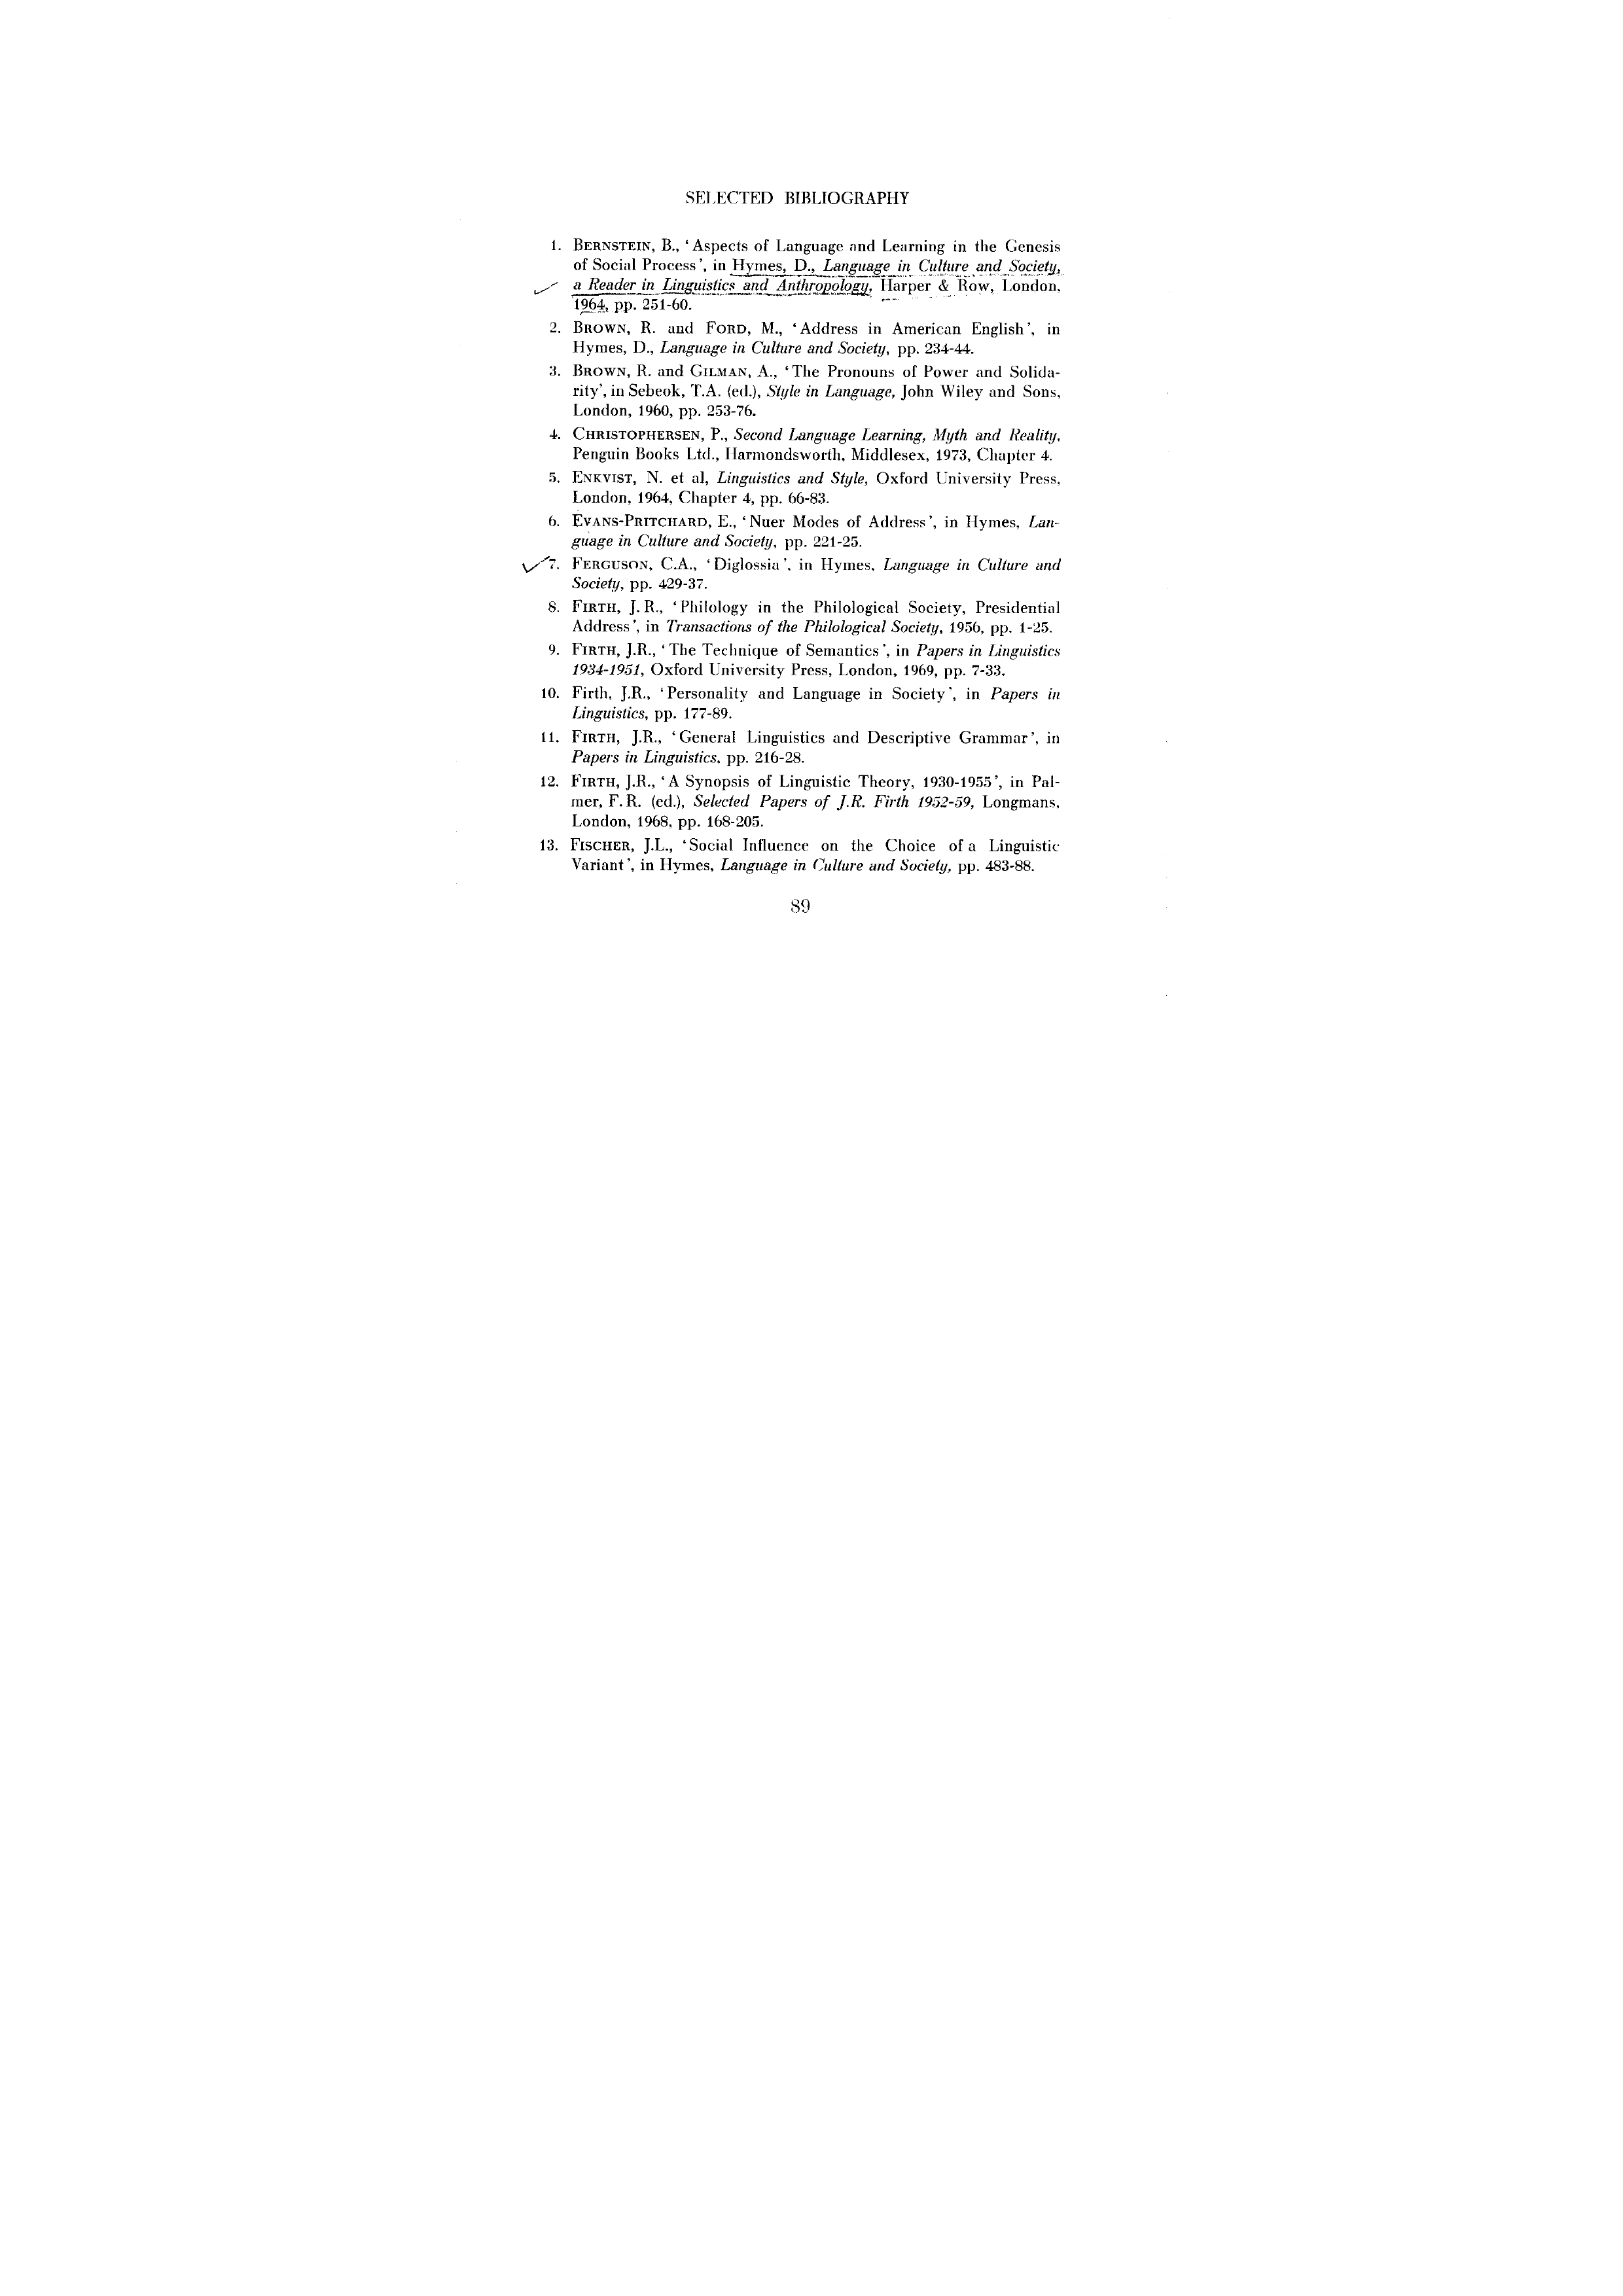 SELECTED BIBLIOGRAPHY
1. BERNSTEIN, B., ‘Aspects of Language and Learning in the Genesis
of Social Process’, in Hymes, D., Language in Culture and Society,
a Reader in Linguistics and Anthropology, Harper & Row, London,
1964, pp. 251-60.
2. BROWN, R. and FORD, M., ‘Address in American English’, in
Hymes, D., Language in Culture and Society, pp. 234-44.
3. BROWN, R. and GILMAN, A., ‘The Pronouns of Power and Solida-
rity’, in Sebeok, T.A. (ed.), Style in Language, John Wiley and Sons,
London, 1960, pp. 253-76.
4. CHRISTOPHERSEN, P., Second Language Learning, Myth and Reality,
Penguin Books Ltd., Harmondsworth, Middlesex, 1973, Chapter 4.
5. ENKVIST, N. et al, Linguistics and Style, Oxford University Press,
London, 1964, Chapter 4, pp. 66-83.
6. EVANS-PRITCHARD, E., ‘Nuer Modes of Address’, in Hymes, Lan-
guage in Culture and Society, pp. 221-25.
7. FERGUSON, C.A., ‘Diglossia’, in Hymes, Language in Culture and
Society, pp. 429-37.
8. FIRTH, J.R., ‘Philology in the Philological Society, Presidential
Address’, in Transactions of the Philological Society, 1956, pp. 1-25.
9. FIRTH, J.R., ‘The Technique of Semantics’, in Papers in Linguistics
1934-1951, Oxford University Press, London, 1969, pp. 7-33.
10. Firth, J.R., ‘Personality and Language in Society’, in Papers in
Linguistics, pp. 177-89.
11. FIRTH, J.R., ‘General Linguistics and Descriptive Grammar’, in
Papers in Linguistics, pp. 216-28.
12. FIRTH, J.R., ‘A Synopsis of Linguistic Theory, 1930-1955’, in Pal-
mer, F.R. (ed.), Selected Papers of J.R. Firth 1952-59, Longmans,
London, 1968, pp. 168-205.
13. FISCHER, J.L., ‘Social Influence on the Choice of a Linguistic
Variant’, in Hymes, Language in Culture and Society, pp. 483-88.
89